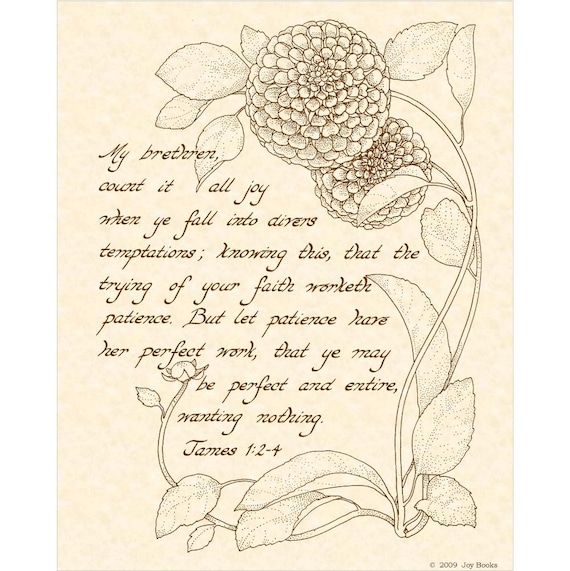 My brethren,
count it all joy
when ye fall into divers
temptations; knowing this, that the
trying of your faith worketh
patience. But let patience have
her perfect work, that ye may
be perfect and entire,
wanting nothing.
James 1:2-4
© 2009 Joy Books